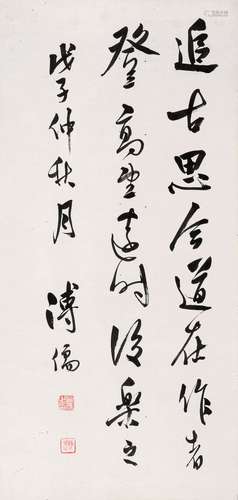 追古思今道在作者
登高望远时复乐之
戊子仲秋月 溥儒